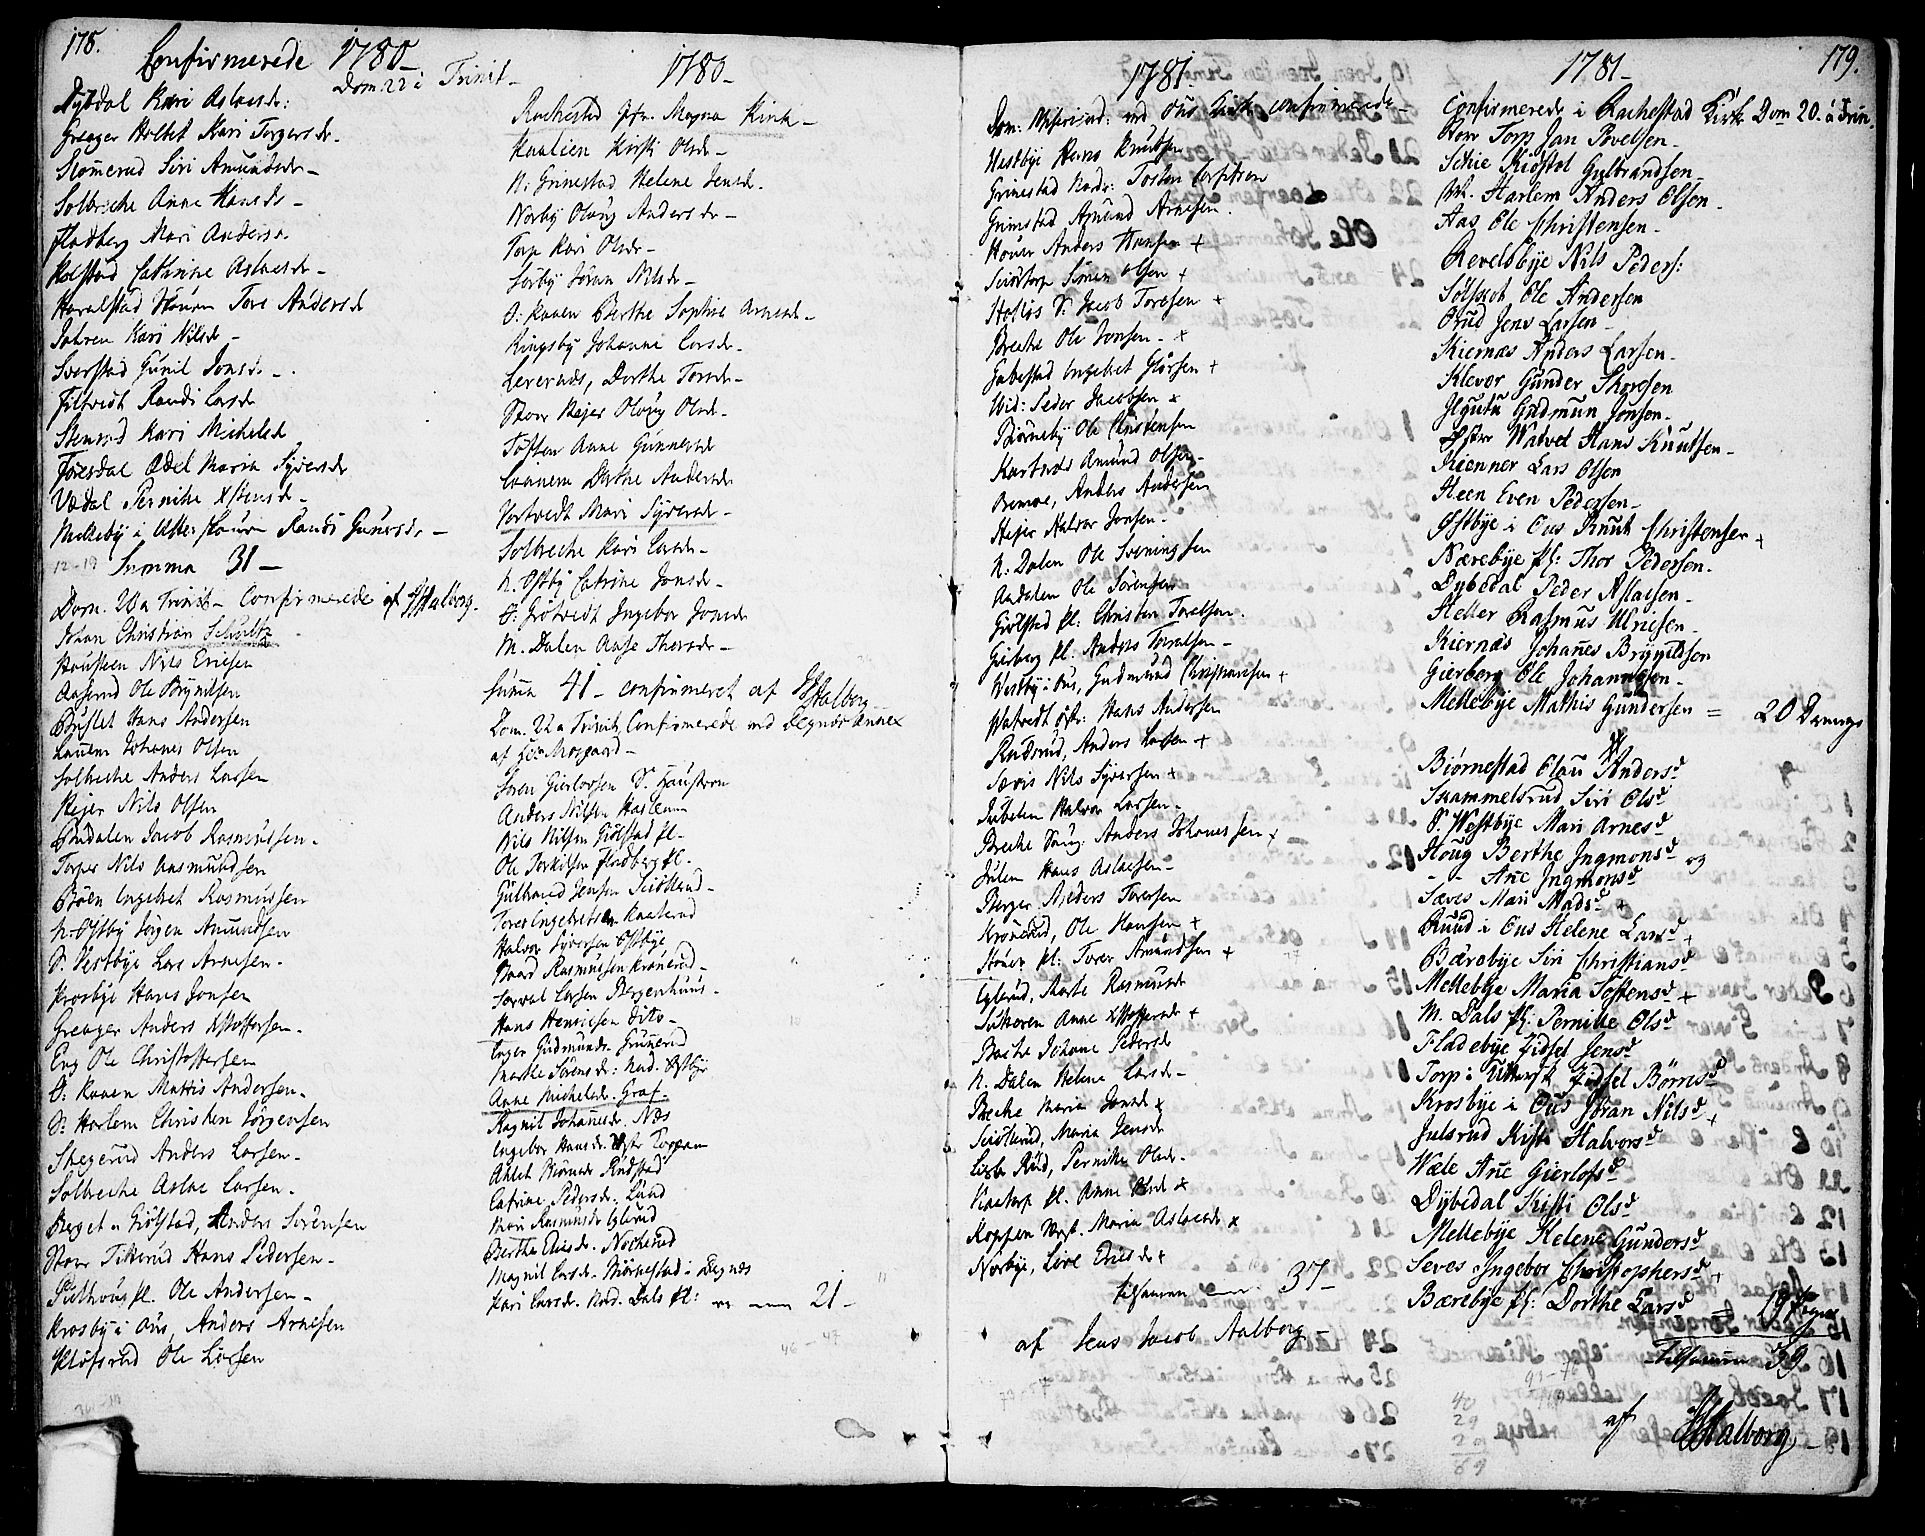 178.
Confirmerede 1780
Dom 22 i Trinit
Dybdal Kari Aslaesdr:
Greager Holtet Kari Torgersdr.
Slomerud Siri Amundsdr
Solbreche Anne Hansdr
Fladberg Mari Andersd.
Kolstad Catrine Aslaesdr
Haralstad Houen Tore Andersdr
Jahren Kari Nilsdr
Sverstad Gunil Jonsdr
Filtvedt Randi Larsdr
Stensrud Kari Michelsdr
Foesdal Edel Maria Syversdr
Vedal Pernille Xstensdr
Mellebÿ i Utter Houen Randi Gunersdr
12-19 Summa 31
Dom. 22 a Trinit Confirmerede af JJAalborg.
Johan Christian Schultz
Housteen Nils Ericsen
Aaserud Ole Brynilsen
Bustet Hans Andersen
Lauem Johanes Olsen
Solbreche Anders Larsen
Rejer Nils Olsen
Brudalen Jacob Rasmussen.
Torper Nils Aasmundsen
Böen Engebret Rasmussen
N. Østby Jörgen Amundsen
S. Vestbye Lars Arnesen.
Krosbye Hans Jonsen
Greager Anders Xstoffersen.
Eng Ole Christoffersen
O: Kaaen Mattis Andersen.
S: Harlem Christen Jörgensen
Skegerud Anders Larsen.
Solbreche Aslac Larsen.
Berget u Giölstad, Anders Sörensen
Stoer Tikkerud Hans Pedersen.
Pilthuus pl. Ole Andersen
Krosby i Ous, Anders Arnesen
Klöfsrud Ole Larsen
1780
Rachestad Kirk
Kaalien Kirsti Olsdr
N: Grinestad Helene Jensdr.
Norby Oloug Andersdr
Torp Kari Olsdr
Sörby Jöran Nilsdr
O: Kaaen Berthe Sophia Arnesdr
Ringsby Johanne Larsdr.
Levernæs, Dorthe Toresdr
Stoer Rejer Oloug Olsdr.
Toften Anne Gunnersdr
Dorthe Andersdr
Vortvedt Mari Syversdr
Solbreche Kari Larsdr
N. Ostby Catrine Jonsdr
O: Grötvedt Ingebor Jonsdr
M. Dalen Aase Thorsdr
Suma 41 confirmeret af JJAalborg
Dom. 22 a Trinit, Confirmerede ved Degnæs Annex
af Hr. Mozgaard
Soren Gierlovsen S. Haustven
Anders Nilsen Harlemm
Nils Nilsen Giölstad pl.
Ole Torkilsen Fladberg pl.
Gulbrand Jensen Sciötland
Tores Engebretsen Kaaterud
Halvor Sÿversen Østbÿe
Baard Rasmussen Kronerud
Larsen Bergenhuus.
Hans Henricsen dito
Inger Gudmunds: Grunerud
Marthe Sörensdr: Nord Østbÿe
Anne Michelsdr. Graf.
Ragnil Johannesdr. Næs
Engebor Hansdr. Vestr Toppen
Ahlet Rudstad
Catrine Pedersdr. Lund
Mari Rasmusdr Eglerud
Berthe Ericsdr. Nocherud
Magnil Larsdr. Biörnestad i Degnæs
Kari Larsdr. Nord. Dals pl: 21
46 - 47
1781
Dom: Misericord: ved Ous Kirk confirmerede
Westbÿe Hans Knudsen
Grinestad Nordr: Tosten
Grinestad Amund Arnesen.
Houer Anders Hansen +
Sciöltorp Simen Olsen +
Hollös S. Jacob Toresen +
Breche Ole Jonsen. x
Gabestad Engebret Glörsen +
Wid: Peder Jacobsen x
Biörneby Ole Christensen
Kortnæs Amund Olsen
Bremoe, Anders Andersen
Rejer Halvor Jonsen.
N: Dalen Ole Sveningsen
Aadalen Ole Sörensen
Giölstad pl: Christen Torelsen.
Gieberg pl. Anders Torelsen
Westby i Ous, Gudmund Christensen +
Watvedt Ostr: Hans Andersen
Rudsrud, Anders Larsen +
Sævis Nils Syversen +
Jubelen Halvor Larsen.
Breche Saug: Anders Johannessen x
Julen Hans Aslaesen
Berger Anders Toresen
Kronerud, Ole Hansen +
Houer pl: Torer Amundsen +
Eglerud, Marte Rasmusdr
Sutteren Anne Xstoffersdr +
Bache Johane Pedersdr
N. Dalen Helene Larsdr
Breche Maria Jonsdr x
Sciötlund, Maria Jensdr
Rüd, Pernille Olsdr.
Kaatorp pl. Anne Olsdr x
Koppen Vest. Maria Aslaesdr x
Norbÿe, Live Ericsdr +
tilsamen 37
af Jens Jacob Aalborg
1781
179.
Confirmerede i Rachestad Kirke Dom 20. a Trin.
Stoer Torp Jan Povelsen
Schie Kiöstol Gulbrandsen
Harlem Anders Olsen
Aas Ole Christensen
Revelsbÿe Nils Peders:
Solscot Ole Andersen
Orud Jens Larsen
Kiernæs Anders Larsen
Klever Gunder
Gudmun Jonsen
Østre Watvet Hans Knudsen
Kienner Lars Olsen
Heen Even Pedersen
Østbÿe i Ous Knut Christensen +
Nærebÿe pl: Thor Pedersen.
Dÿbedal Peder Aslaesen
Heller Rasmus Ulricsen.
Kiernæs Johanes Brynildsen
Gierberg Ole Johannesen
Mellebÿe Mathis Gundersen = 20 Drenge
Biørnestad Olau Andersd
Skammelsrud, Siri Olsd
S. Westbÿe Mari Arnesd
Houg Berthe Ingmonsd og
- - Ane Ingmonsd
Sæves Mari Madsd +
Ruud i Ous Helene Larsd +
Bærebÿe Siri Christiansd
Mellebÿe Maria Tostensd +
M. Dals pl: Pernille Olsd
Fladebÿe Zidsel Jensd
Torp i Utmark Zidsel Børresd
Krosbÿe i Ous Jøran Nilsd +
Julsrud Kisti Halvorsd
Wæle Ane Gierlofsd
Dÿbedal Kisti Olsd
Mellebÿe Helene Gundersd
Seves Ingebor Christophersd +
Bærebÿe pl: Dorthe Larsd = 19 Piger
Tilsamen 39
af JJAalborg
40
29
20
89